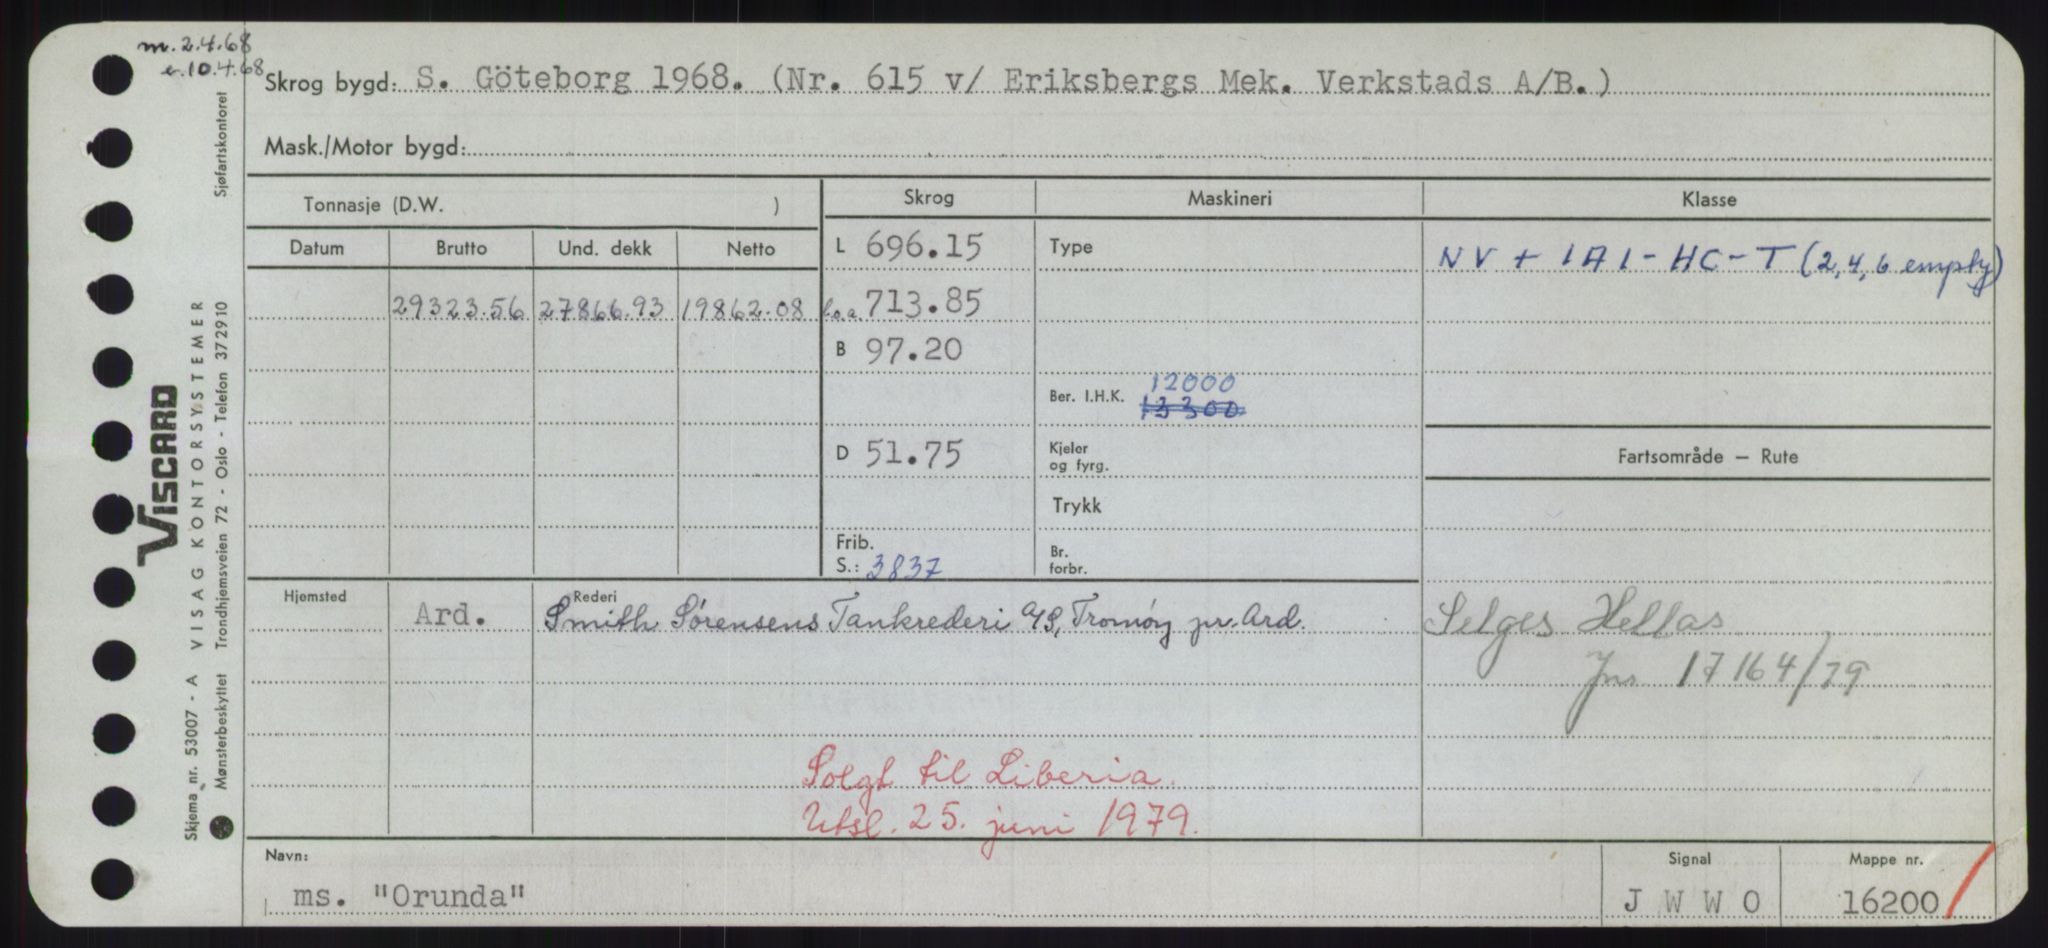 m. 2.4.68
e. 10.4.68
Skrog bygd: S. Göteborg 1968. (Nr. 615 v/ Eriksbergs Mek. Verkstads A/B.)
Mask./Motor bygd:
Tonnasje (D.W. )
Skrog Maskineri Klasse
Datum Brutto Und. dekk Netto
L 696.15 Type NV + 1A1 - HC - T (2, 4, 6 empty)
29323.56 27866.93 19862.08 l.o.a. 713.85
B 97.20
Ber. I.H.K. 12000
13300
D 51.75
Kjeler og fyrg.
Fartsområde — Rute
Trykk
Frib. S.: 3837
Br. forbr.
Hjemsted Ard.
Rederi Smith Sørensens Tankrederi A/S, Tromøy pr. Ard.
Selges Hellas
Jnr 17164/79
Solgt til Liberia.
Utsl. 25. juni 1979.
Navn: ms. "Orunda"
Signal J W W O
Mappe nr. 16200
VISCARD
VISAG KONTORSYSTEMER
Skjema nr. 53007 - A
Mønsterbeskyttet Trondhjemsveien 72 - Oslo - Telefon 372910 Sjøfartskontoret